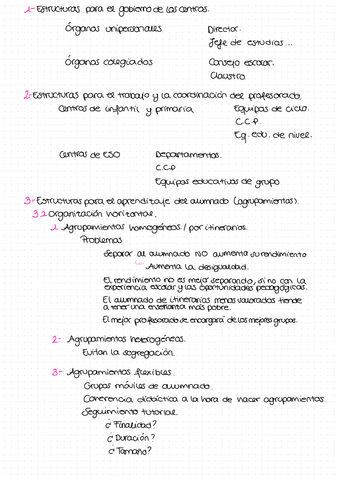 1- Estructuras para el gobierno de los centros.
Órganos unipersonales Director.
Jefe de estudios...
Órganos colegiados Consejo escolar.
Claustro.
2- Estructuras para el trabajo y la coordinación del profesorado.
Centros de infantil y primaria Equipos de ciclo.
C.C.P.
Eq. edu. de nivel.
Centros de ESO Departamentos.
C.C.P
Equipos educativos de grupo
3- Estructuras para el aprendizaje del alumnado (agrupamientos).
3.2 Organización horizontal.
1. Agrupamientos homogéneos / por itinerarios.
Problemas
Separar al alumnado NO aumenta su rendimiento
Aumenta la desigualdad.
El rendimiento no es mejor separando, si no con la
experiencia escolar y las oportunidades pedagógicas.
El alumnado de itinerarios menos valorados tiende
a tener una enseñanza más pobre.
El mejor profesorado se encargará de los mejores grupos.
2- Agrupamientos heterogéneos.
Evitan la segregación.
3- Agrupamientos flexibles.
Grupos móviles de alumnado.
Coherencia didáctica a la hora de hacer agrupamientos.
Seguimiento tutorial.
¿Finalidad?
¿Duración?
¿Tamaño?